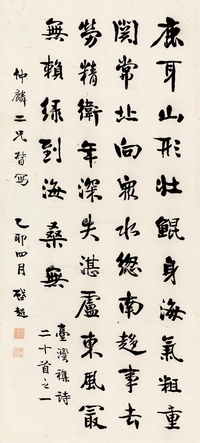 鹿耳山形壯鯤身海氣粗重
關常北向衆水總南趨事去
勞精衛年深失湛盧東風最
無賴綠到海桑無
臺灣襍詩
二十首之一
仲麟二兄督寫
乙卯四月 啓超